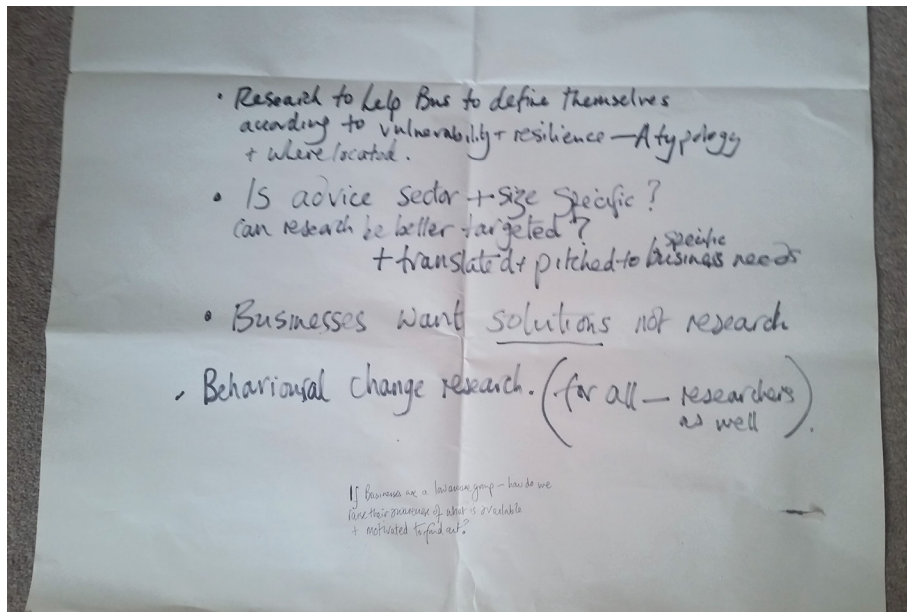 • Research to help Bus to define themselves
according to vulnerability + resilience — A typology
+ where located.
• Is advice sector + size specific?
can research be better targeted?
+ translated + pitched to specific business needs
• Businesses want solutions not research
• Behavioural change research. (for all — researchers
as well).
If Businesses are a low aware group — how do we
raise their awareness of what is available
+ motivated to find out?